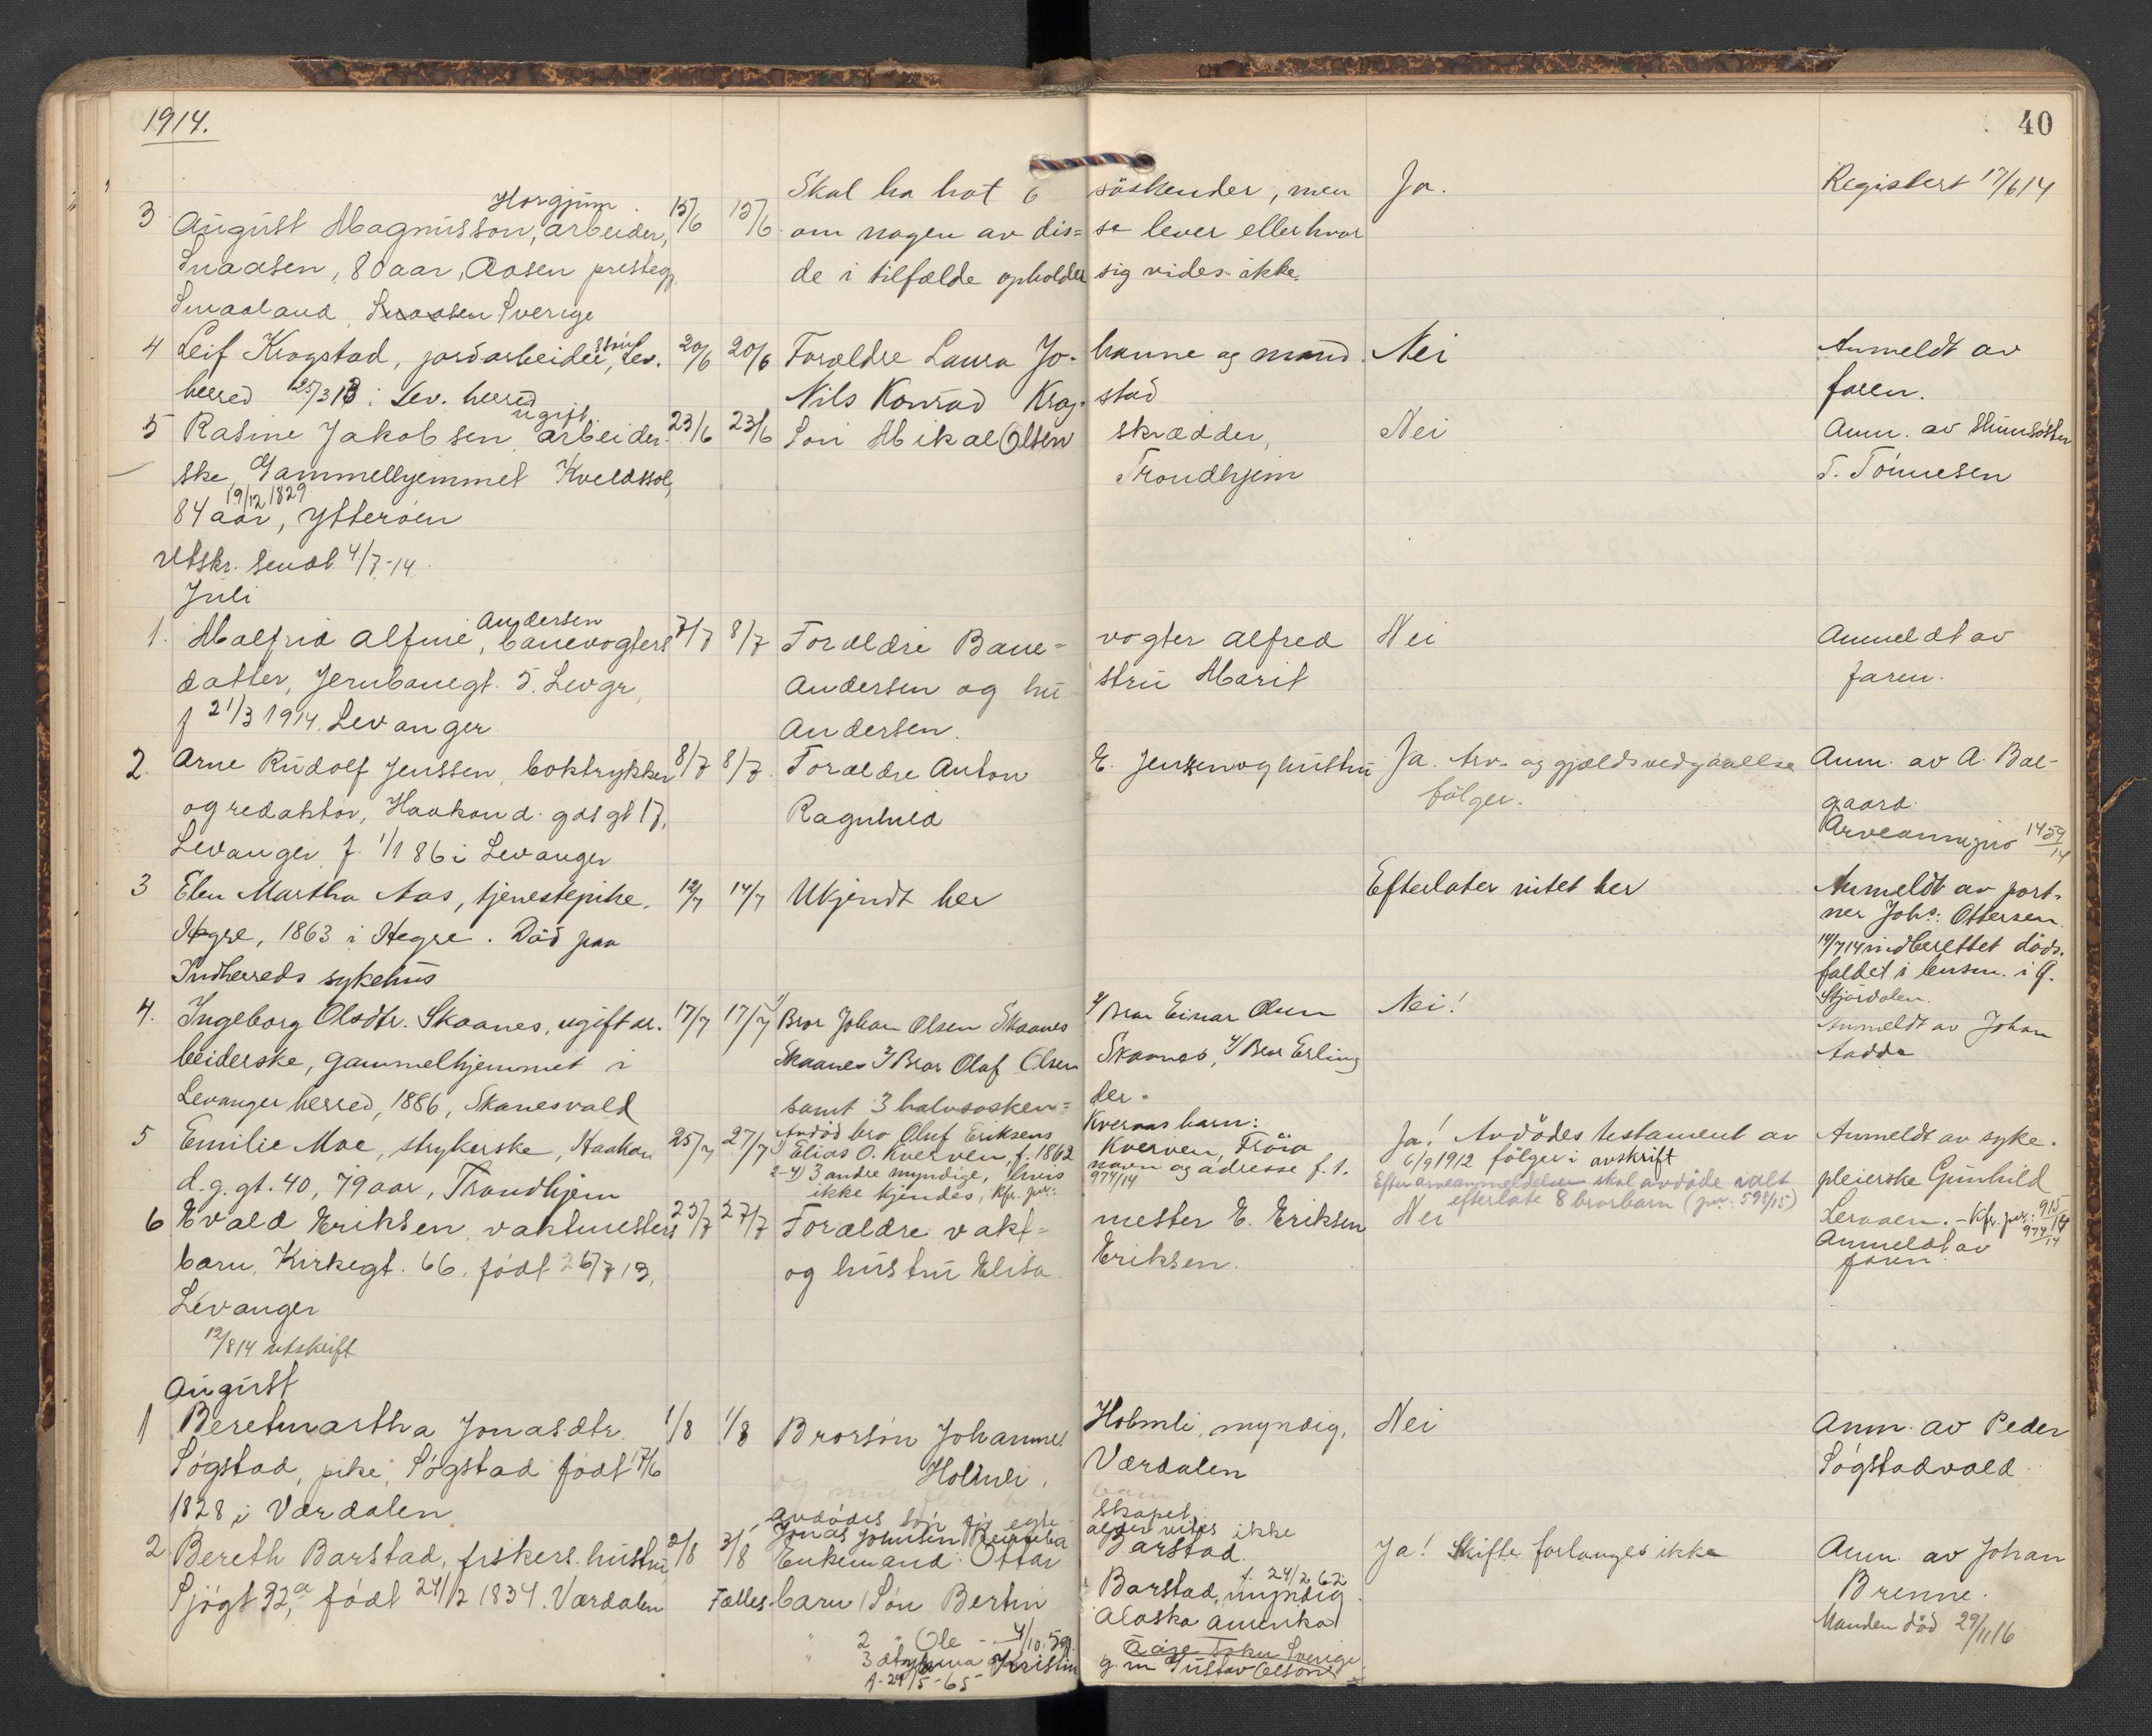 1914.
40
Skal ha hat 6 söskender, men Ja. Registert 17/6 14
3 August Magnusson, arbeider, 15/6 15/6 om nogen av dis= se lever eller hvor
Snaasen, 80 aar, Aasen prestegj. de i tilfælde opholder sig vides ikke.
Smaaland, Snaasen Sverige
4 Leif Krogstad, jordarbeider, Lev. 20/6 20/6 Forældre Laura Jo- hanne og mand Nei Anmeldt av
herred 25/3 13 i Lev. herred Nils Konrad Krog- stad faren.
ugift
5 Rasine Jakobsen arbeider- 23/6 23/6 Sön Mikal Olsen skrædder, Nei Anm. av
ske, Gammelhjemmet Kveldssol, Trondhjem T. Tönnesen
19/12 1829
84 aar, Ytteröen
Utskr. sendt 4/7-14.
Juli
Andersen
1. Malfrid Alfine, banevogters 7/7 8/7 Forældre Bane= vogter Alfred Nei Anmeldt av
datter, Jernbanegt. 5. Levgr, Andersen og hu stru Marit faren.
f 21/3 1914. Levanger Andersen.
2. Arne Rudolf Jenssen, boktrykker 8/7 8/7. Forældre Anton E. Jenssen og hustru Ja. Arv- og gjældsvedgaaelse Anm. av A. Bal-
og redaktör, Haakon d. gds gt 17, Ragnhild fölger. gaard.
Levanger f. 1/1 86 i Levanger Arveanm jno 1459/14
3 Elen Martha Aas, tjenestepike. 12/7 14/7 Ukjendt her Efterlater intet her Anmeldt av port-
Hegre, 1863 i Hegre. Död paa ner Johs: Ottersen.
14/7 14 indberettet döds-
Indherreds sykehus faldet i lensm. i Ö.
Stjördalen.
4. Ingeborg Olsdtr. Skaanes, ugift ar- 17/7 17/7 1/ Bror Johan Olsen Skaanes 2/ Bror Einar Olsen Nei! Anmeldt av Johan
beiderske, gammelhjemmet i Skaanes 3/ Bror Olaf Olsen Skaanes, 4/ Bror Erling
Levanger herred, 1886, Skanesvald samt 3 halvsösken= der.
5 Emilie Moe, strykerske, Haakon 25/7 27/7 Avdöd bro Oluf Eriksens Kvernas barn: Ja! Avdödes testament av Anmeldt av syke-
1) Elias O. Kverven, f. 1862 Kverven, Fröia 6/9 1912 fölger i avskrift
d. g. gt. 40, 79 aar, Trondhjem 2-4) 3 andre myndige, hvis navn og adresse f. t. Efter arveanmeldelsen skal avdöde ialt pleierske Gunhild
ikke kjendes, kfr. jnr: 974/14 efterlate 8 brorbarn (jnr: 598/15)
6 Evald Eriksen, vaktmesters 25/7 27/7 Forældre vakt= mester E. Eriksen Nei Leraaen. - Kfr. jnr: 915/14 974/14
barn, Kirkegt. 66, födt 26/7 13, og hustru Elisa Eriksen. Anmeldt av
Levanger faren
12/8 14 utskrift
August
1 Beretmartha Jonasdtr. 1/8 1/8 Brorsön Johannes Holmli, myndig, Nei Anm. av Peder
Søgstad, pike, Søgstad födt 17/6 Holmli. Værdalen Søgstadvald
1828 i Værdalen
avdödes sön för egte- skapet,
Jonas Johnsen alder vites ikke
2 Bereth Barstad, fiskers hustru, 2/8 3/8 Enkemand Ottar Barstad. Ja! Skifte forlanges ikke Anm. av Johan
Sjögt 32, a födt 24/12 1834. Værdalen Fælles barn 1 Sön Bertin Barstad, myndig f. 24/2 62 Brenne.
" 2 " Ole - 4/10.59. Alaska Amerika Manden död 29/11 16
" 3 dtr Kristin
f. 24/5-65 g. m Gustav Olsson